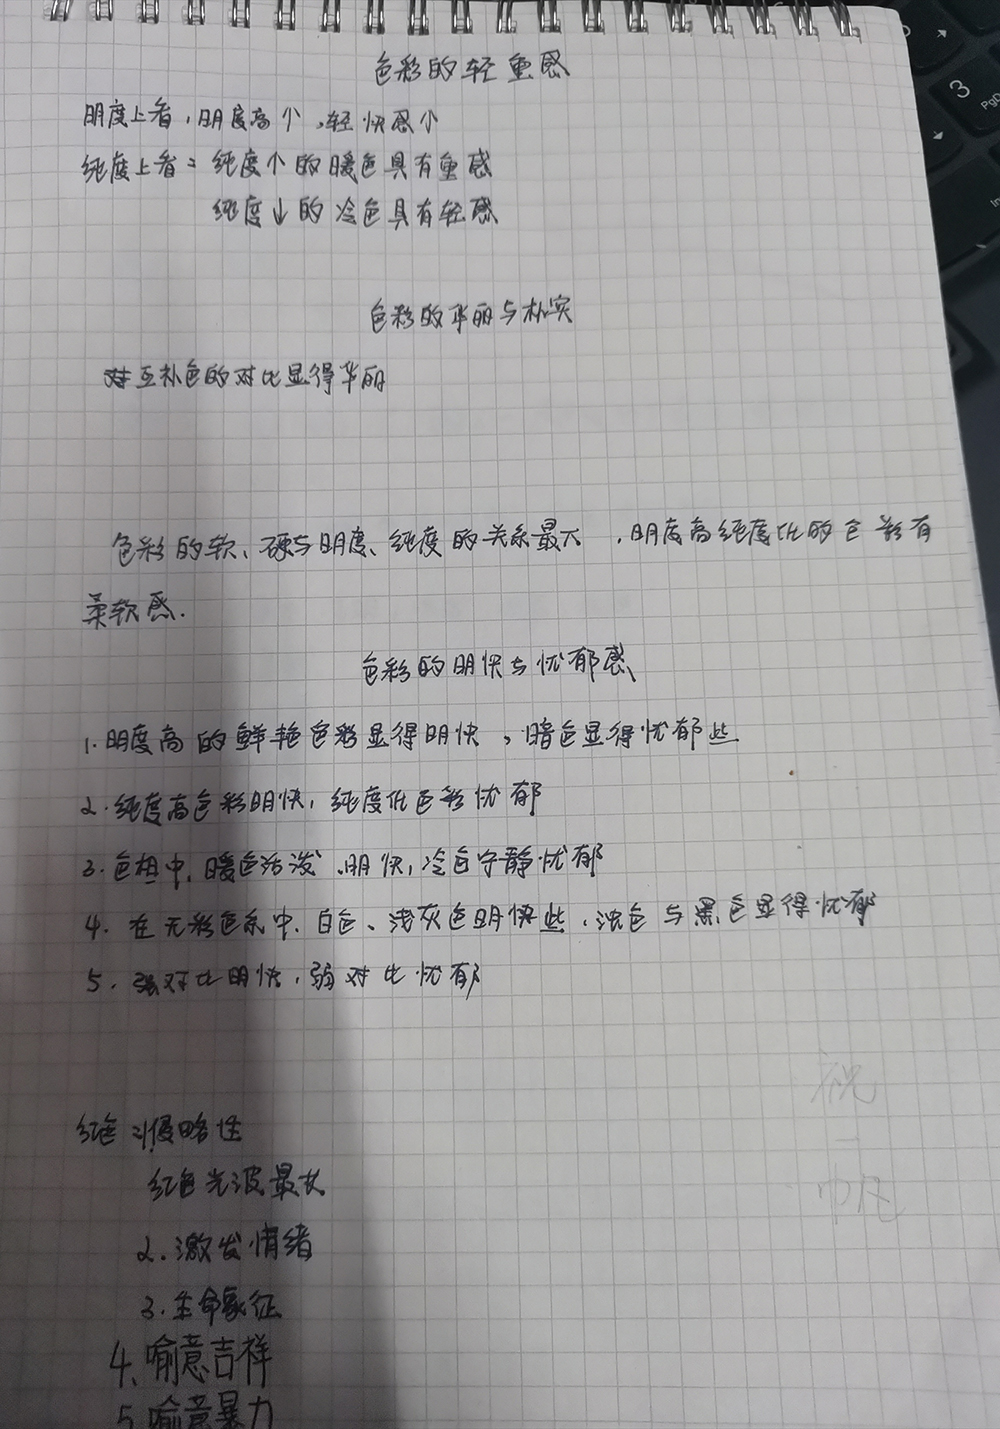 色彩的轻重感
明度上看，明度高个，轻快感个
纯度上看：纯度个的暖色具有重感
纯度↓的冷色具有轻感
色彩的华丽与朴实
对互补色的对比显得华丽
色彩的软、硬与明度、纯度的关系最大，明度高纯度低的色彩有
柔软感.
色彩的明快与忧郁感
1.明度高的鲜艳色彩显得明快，暗色显得忧郁些
2.纯度高色彩明快，纯度低色彩忧郁
3.色相中，暖色活泼、明快，冷色宁静忧郁
4.在无彩色系中.白色、浅灰色明快些，浊色与黑色显得忧郁
5.强对比明快，弱对比忧郁
红色：侵略性
红色光波最大
2.激发情绪
3.生命象征
4.喻意吉祥
5.喻意暴力
3